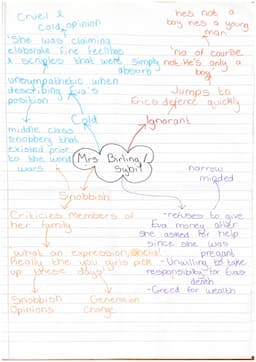 Cruel &
Cold opinion
'She was claiming
elaborate fine feelings
& scruples that were simply
absurb
unsympathetic when
describing Eva's
position
Cold
middle class
snobbery that
existed prior
to the world
wars
hes not a
boy hes a young
man
'no of course
not. He's only a
boy'
Jumps to
Erics defence quickly
Ignorant
Mrs Birling/
Sybil
Snobbish
Criticies members of
her family
'what an expression, Sheila!
Really the you girls pick
up these days!'
Snobbish
Opinions
Generation
Change
narrow
minded
-refuses to give
Eva money after
she asked for help
since she was
pregant
-Unwilling to take
responsibilty for Evas
death
-Greed for wealth